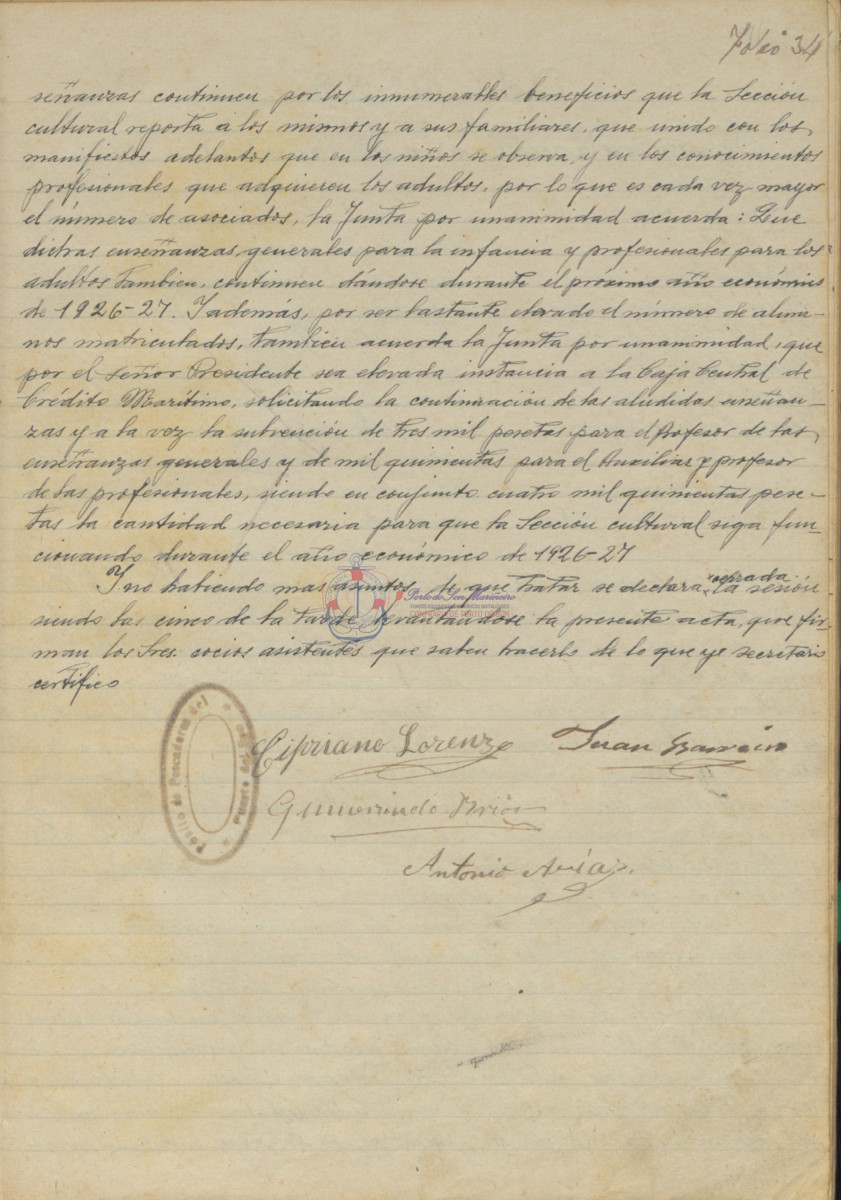 Folio 34
señanzas continuen por los innumerables beneficios que la Sección
cultural reporta a los mismos y a sus familiares, que unido con los
manifiestos adelantos que en los niños se observa, y en los conocimientos
profesionales que adquieren los adultos, por lo que es cada vez mayor
el número de asociados, la Junta por unanimidad acuerda: Que
dichas enseñanzas, generales para la infancia y profesionales para los
adultos tambien, continuen dándose durante el próximo año económico
de 1926-27. Y además, por ser bastante elevado el número de alum-
nos matriculados, tambien acuerda la Junta por unanimidad, que
por el Señor Presidente sea elevada instancia a la Caja Central de
Crédito Marítimo, solicitando la continuación de las aludidas enseñan-
zas y a la vez la subvención de tres mil pesetas para el Profesor de las
enseñanzas generales y de mil quinientas para el Auxiliar y profesor
de las profesionales, siendo en conjunto cuatro mil quinientas pese-
tas la cantidad necesaria para que la Sección cultural siga fun-
cionando durante el año económico de 1926-27
Y no habiendo mas asuntos de que tratar se declara cerrada la sesión
siendo las cinco de la tarde levantandose la presente acta, que fir-
man los Sres. socios asistentes que saben hacerlo de lo que yo secretario
certifico
Porto do Son Mariñeiro
Pósito de Pescadores del
Puerto del Son
Cipriano Lorenzo Juan
Gumersindo
Antonio